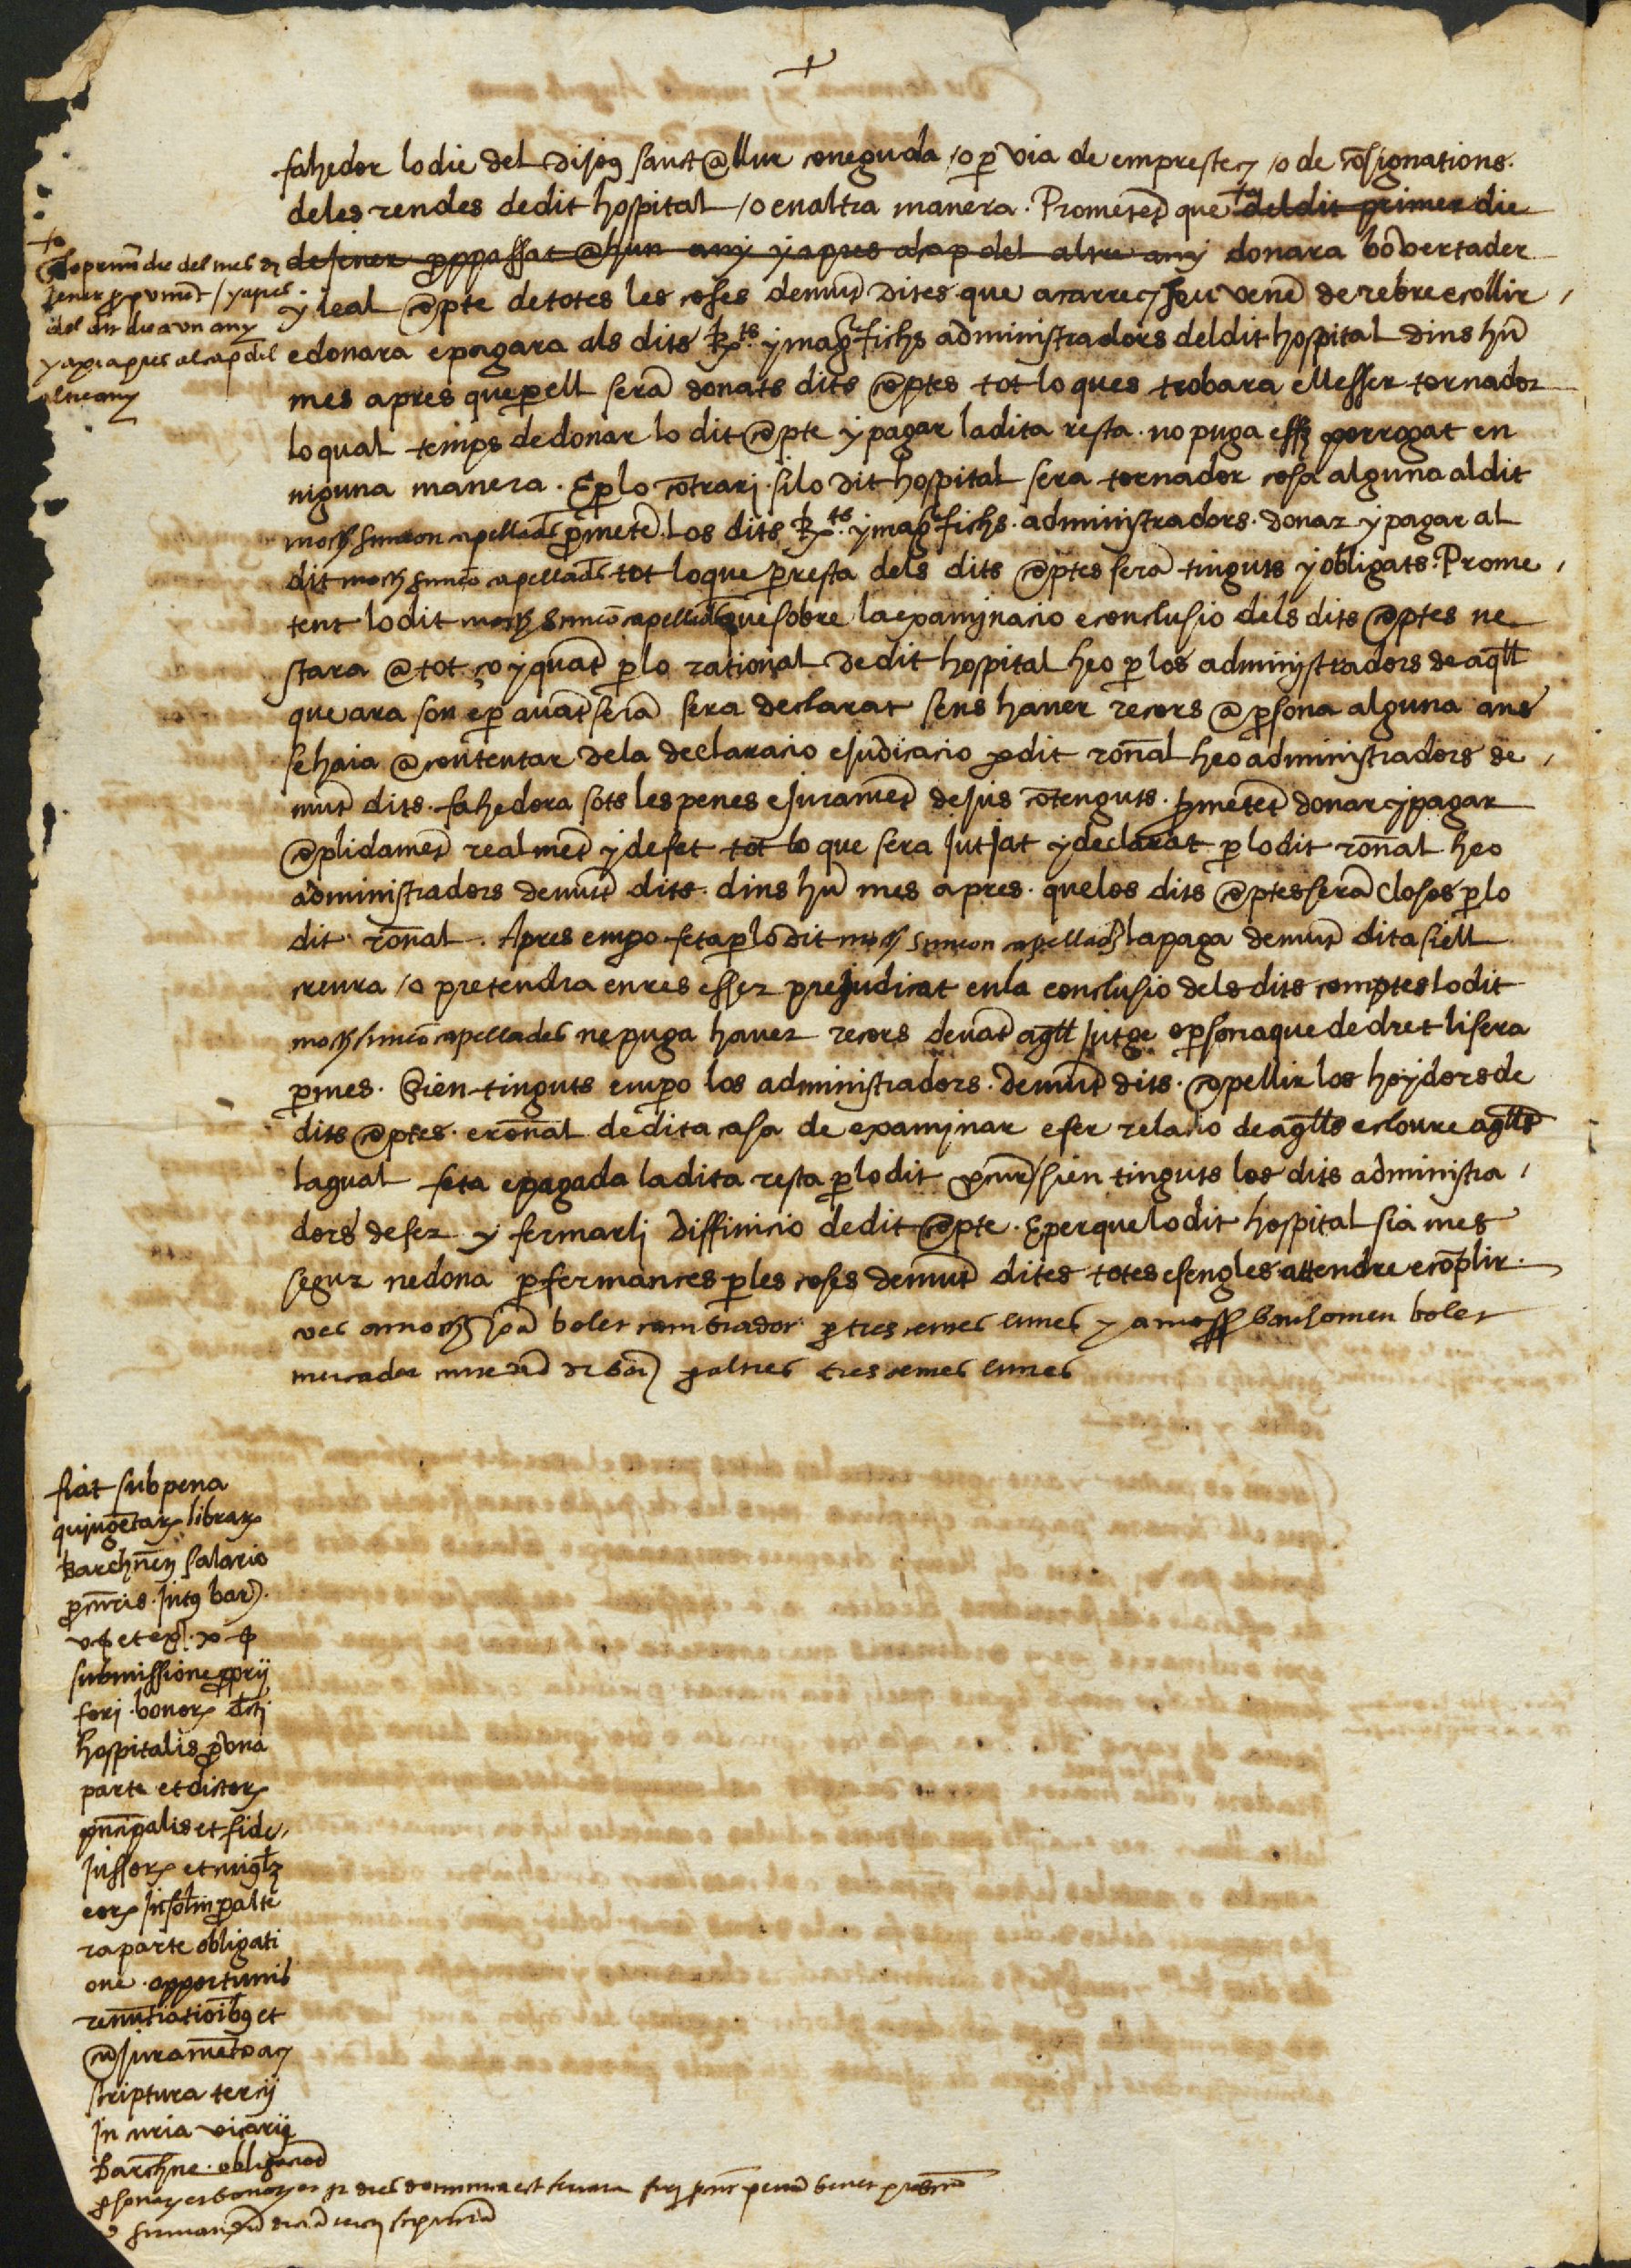 fahedor lo die del Dijo9 sanct @llur coneguda /o p̱ via de emprestec /o de cōsignations.
deles rendes dedit hospital /o enaltra manera. Prometēt que deldit primer die
dejener proppassat @hun any y apres alcap del altre any donara bō vertader
y leal @pte detotes les coses demūt dites que acarrec seu vene de rebre ecollir
edonara epagara als dits Rts. y magfichs administradors deldit hospital dins hū
mes apres quep̱ell serā donats dits @ptes tot lo ques trobara ell esser tornador
lo qual temps dedonar lo dit @pte y pagar ladita resta. no puga esser porrogat en
niguna manera. E p̱ lo cōtrari. silo dit hospital sera tornador cosa alguna al dit
moss Simeon capellades p̱metē. Los dits Rts. y magfichs. administradors. donar y pagar al
dit moss Simeō capellades tot loque p̱ resta dels dits @ptes serā tinguts y obligats. Prome
tent lodit moss Simeō capellades que sobre la examinacio e conclusio dels dits @ptes ne
stara @ tot ço y quāt p̱ lo rational de dit hospital heo p̱ los administradors de aqll
que ara son e p̱ auāt serā sera declarat sens hauer recors @ p̱sona alguna ans
sehaia @contentar dela declaracio ejudicacio p̱ dit ronal heo administradors de
mūt dits. fahedora sots les penes e juramēt dejus cōtenguts. p̱metēt donar y pagar
@plidamēt realmēt y defet tot lo que sera jutjat y declarat p̱ lo dit ronal heo
administradors demūt dits. dins hū mes apres. quelos dits @ptes serā closos p̱ lo
dit ronal. Apres empo feta p̱ lo dit moss Simeon capellades la paga demūt dita siell
creura /o pretendra enres esser prejudicat enla conclusio dels dits comptes lodit
moss simeō capellades ne puga hauer recors deuāt aqll jutge o p̱sona que de dret li sera
p̱mes. Sien tinguts empo los administradors. demūt dits. @pellir los hoydors de
dits @ptes. e ronal de dita casa de examinar e fer relacio de aqlls e cloure aqlls
laqual feta e pagada ladita resta p̱ lo dit sien tinguts los dits administra
dors de fer y fermarli diffinicio de dit @pte. E perque lo dit hospital sia mes
segur nedona p̱ fermances p̱ les coses demūt dites totes e sengles attendre e cōplir.
Joā bolet p̱ tres y a moss barthomeu bolet
mercader p̱ altres tres
lo prim die del mes de
Jener p̱ p̱ vinēt / y apres
del dit die a un any
y axi apres al cap del
altre any
fiat sub pena
quingētar librar
barchnēn salario
p̱curis. intus bar
et ex
submissione p̱prii
fori. bonor dicti
hospitalis p̱ una
parte et dictor
principalis et fide
jussor et
eor insolm p̱ alte
ra parte obligati
one. opportunis
renūtiatiōib9 et
cū juramēto ac
scriptura tercii
in curia vicarii
Barchne. obligando
p̱sonas et bona